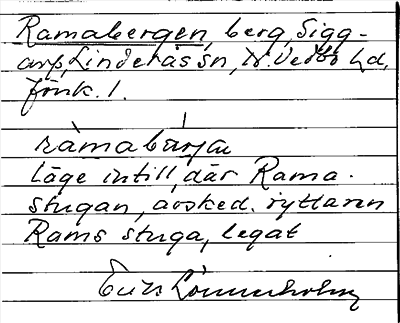 Ramabergen, berg, Sigg-
arp, Linderås sn, N. Vedbo hd,
Jönk. l.
ràmabárjan
Läge intill, där Rama-
stugan, avsked. ryttaren
Rams stuga, legat
Erik Lönnerholm